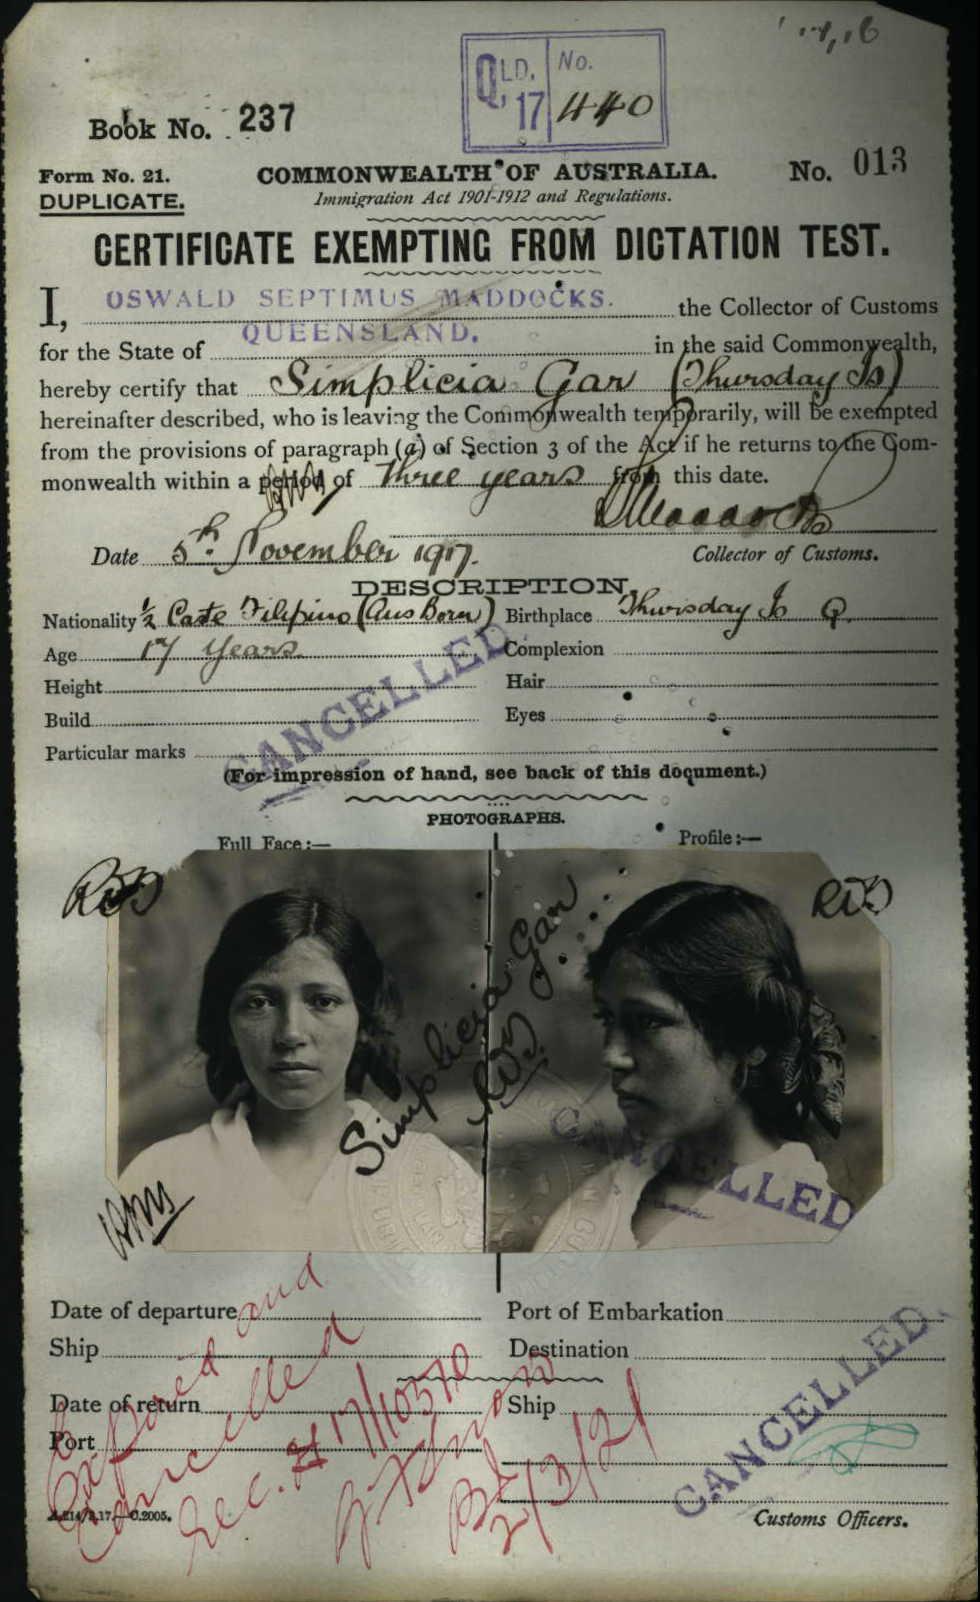 QLD. No.
17 440
Book No. 237
Form No. 21. COMMONWEALTH OF AUSTRALIA. No. 013
DUPLICATE. Immigration Act 1901-1912 and Regulations.
CERTIFICATE EXEMPTING FROM DICTATION TEST.
I, OSWALD SEPTIMUS MADDOCKS. the Collector of Customs
for the State of QUEENSLAND. in the said Commonwealth,
hereby certify that Simplicia Gar (Thursday Is)
hereinafter described, who is leaving the Commonwealth temporarily, will be exempted
from the provisions of paragraph (a) of Section 3 of the Act if he returns to the Com-
monwealth within a period of Three years from this date.
Date 5th November 1917. Collector of Customs.
DESCRIPTION.
Nationality ½ Caste Filipino (Aus Born) Birthplace Thursday Is Q.
Age 17 years. Complexion
Height Hair
Build Eyes
Particular marks
CANCELLED.
(For impression of hand, see back of this document.)
PHOTOGRAPHS.
Full Face:— Profile:—
Simplicia Gar
CANCELLED
Date of departure Port of Embarkation
Ship Destination
Date of return Ship
Port
Expired and
Cancelled
CANCELLED.
2/3/21
Customs Officers.